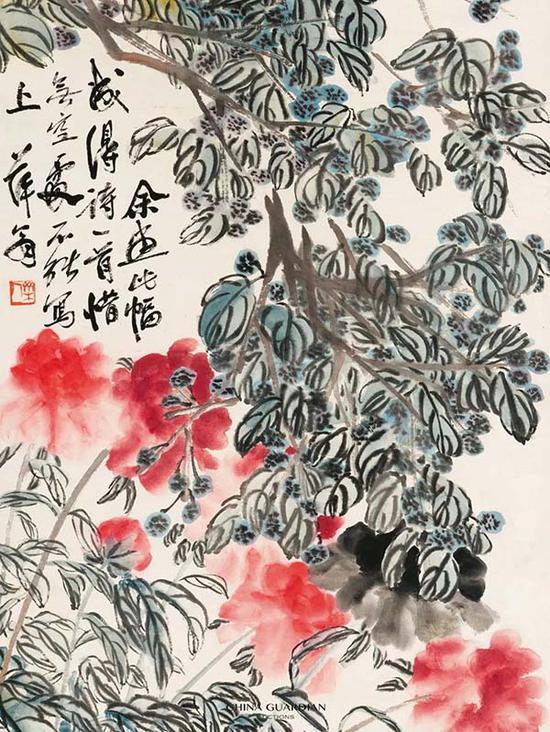 余畫此幅
成得詩一首惜
無空處不能寫
上 萍翁
CHINA GUARDIAN
AUCTIONS